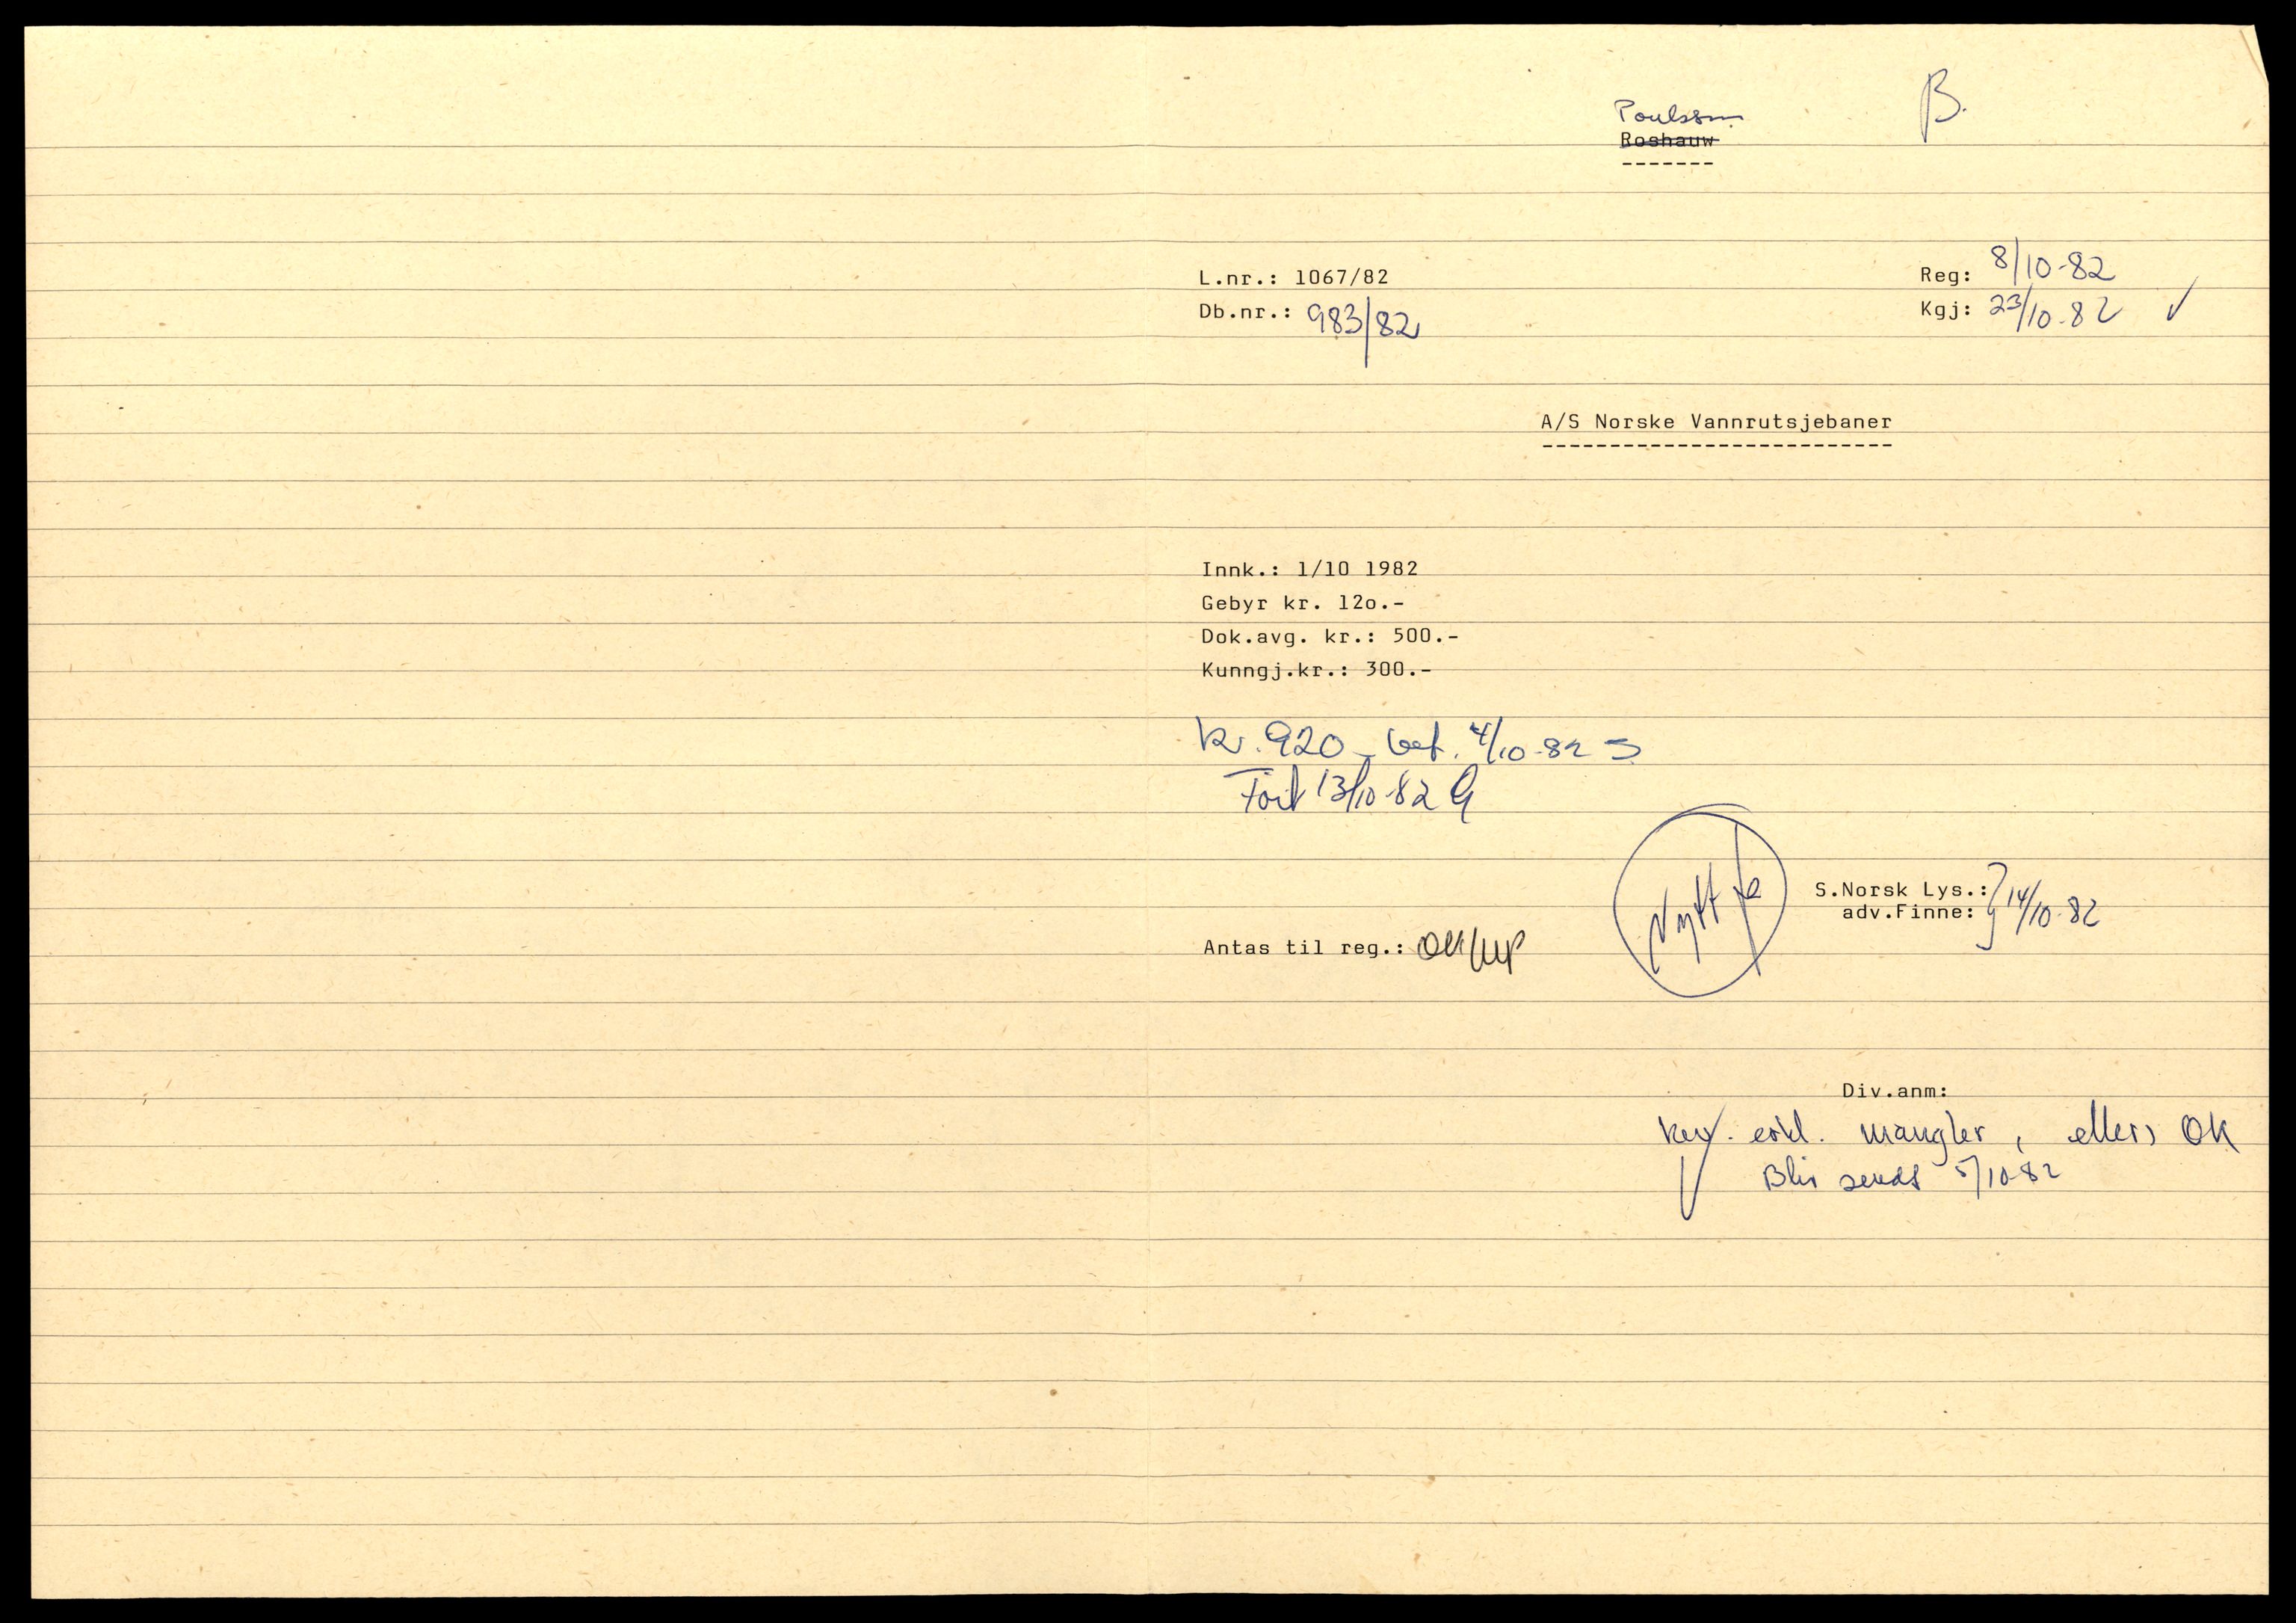 Poulsson B.
Roshauw
L.nr.: 1067/82 Reg: 8/10-82
Db.nr.: 983/82 Kgj: 23/10-82 ✓
A/S Norske Vannrutsjebaner
Innk.: 1/10 1982
Gebyr kr. 12o.-
Dok.avg. kr.: 500.-
Kunngj.kr.: 300.-
kr. 920 - bet. 4/10-82 S
Ført 13/10-82 G
Nytt fa
S.Norsk Lys.: } 14/10-82
adv.Finne:
Antas til reg.: OK/MP
Div.anm:
Rev. erkl. mangler, ellers OK
Blir sendt 5/10-82